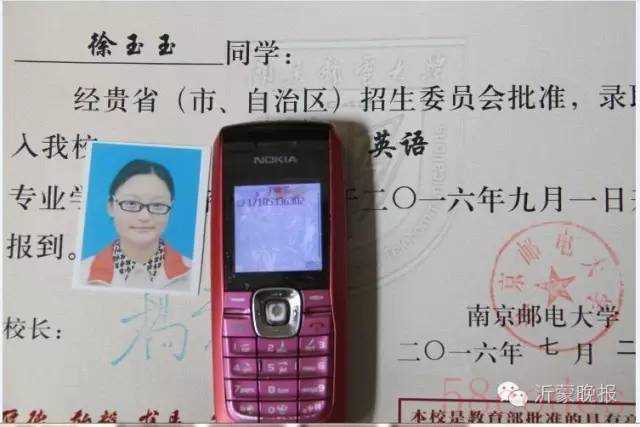 徐玉玉 同学：
经贵省（市、自治区）招生委员会批准，录
入我校 英语
NOKIA
专业学 于二〇一六年九月一日
报到。
南京邮电大学
校长： 南京邮电大学
二〇一六年七月二
沂蒙晚报
本校是教育部批准的具有